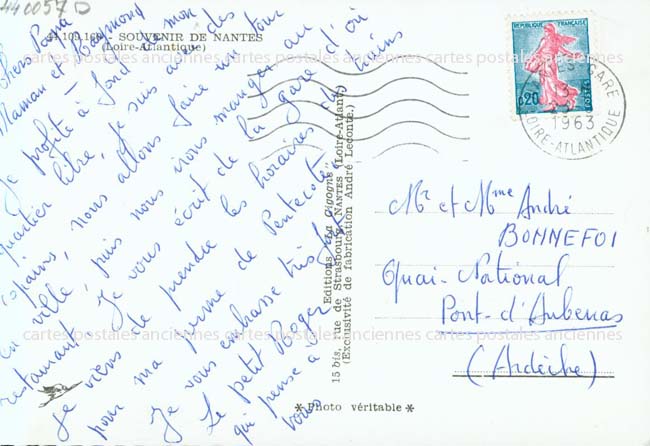 440057D
44.109.169 SOUVENIR DE NANTES
(Loire-Atlantique)
Chers Papa
Maman et Raymond
Je profite à fond de mon
quartier libre, je suis avec des
copains, nous allons faire un tour
en ville, puis nous irons manger au
restaurant. Je vous écrit de la gare d'où
je viens de prendre les horaires des trains
pour ma permе de Pentecôte.
Je vous embrasse très fort
Le petit Roger
qui pense à
vous
Editions "La Cigogne"
15 bis, rue de Strasbourg, NANTES (Loire-Atlant.)
(Exclusivité de fabrication André Leconte)
*Photo véritable*
REPUBLIQUE FRANÇAISE
0,20
POSTES
GARE
1963
LOIRE-ATLANTIQUE
Mr et Mme André
BONNEFOI
Quai National
Pont-d'Aubenas
(Ardèche)
cartes postales anciennes cartes postales anciennes cartes postales anciennes
cartes postales anciennes cartes postales anciennes cartes postales anciennes